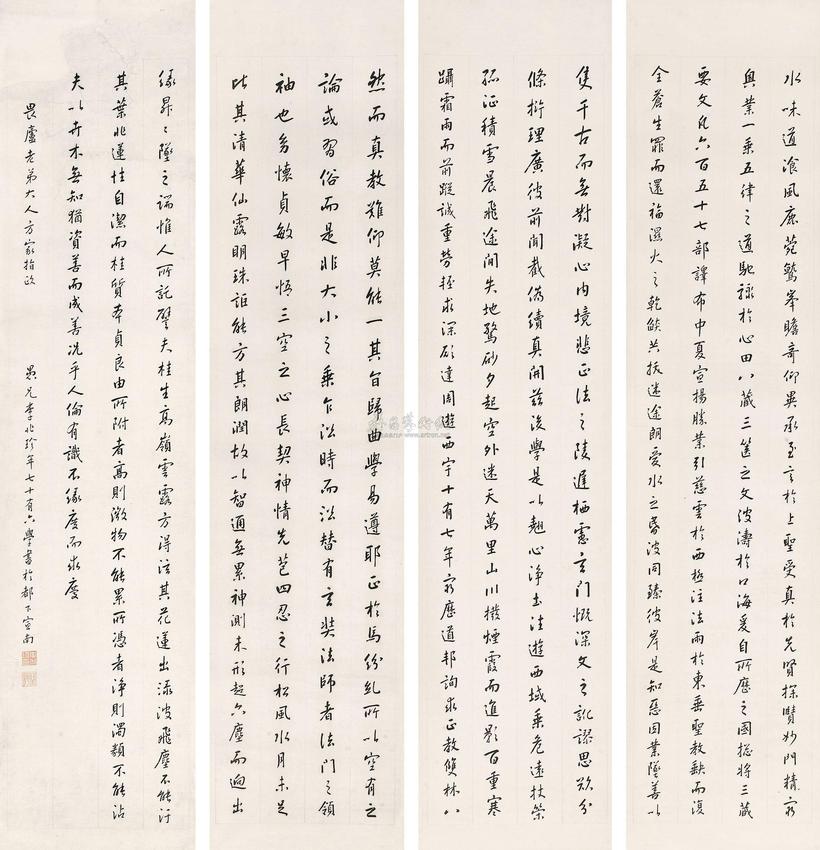 然而真教難仰莫能一其旨歸曲學易遵耶正於焉紛糺所以空有之
論或習俗而是非大小之乘乍沿時而沿替有玄奘法師者法門之領
袖也幼懷貞敏早悟三空之心長契神情先苞四忍之行松風水月未足
比其清華仙露明珠詎能方其朗潤故以智通無累神測未形超六塵而迥出
隻千古而無對凝心內境悲正法之陵遲栖慮玄門慨深文之訛謬思欲分
條析理廣彼前聞截偽續真開茲後學是以翹心淨土往遊西域乘危遠杖策
孤征積雪晨飛途間失地驚砂夕起空外迷天萬里山川撥煙霞而進影百重寒
躡霜雨而前蹤誠重勞輕求深願達周遊西宇十有七年窮歷道邦詢求正教雙林八
水味道飡風鹿菀鷲峯瞻奇仰異承至言於上聖受真於先賢探賾妙門精窮
奧業一乘五律之道馳驟於心田八藏三篋之文波濤於口海爰自所歷之國總將三藏
要文凡六百五十七部譯布中夏宣揚勝業引慈雲於西極注法雨於東垂聖教缺而復
全蒼生罪而還福濕火之乾燄共拔迷途朗愛水之昏波同臻彼岸是知惡因業墜善以
緣昇昇墜之端惟人所託譬夫桂生高嶺雲露方得泫其花蓮出淥波飛塵不能汙
其葉非蓮性自潔而桂質本貞良由所附者高則微物不能累所憑者淨則濁類不能沾
夫以卉木無知猶資善而成善況乎人倫有識不緣慶而求慶
畏廬老弟大人方家指政
愚兄李兆珍年七十有六學書於都下宣南